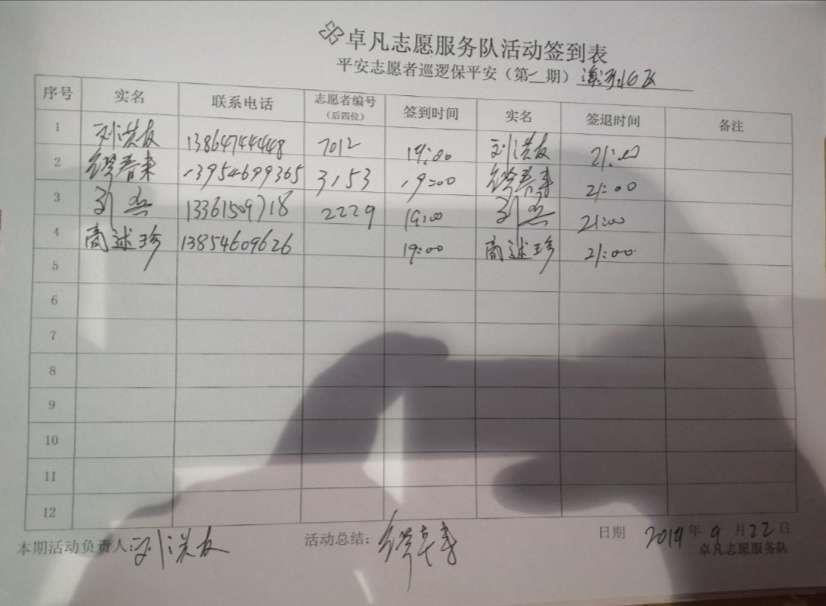 卓凡志愿服务队活动签到表
平安志愿者巡逻保平安（第 期）
序号 实名 联系电话 志愿者编号（后四位） 签到时间 实名 签退时间 备注
1 刘洪友 13864744448 7012 19:00 刘洪友 21:00
2 春来 13954699365 3153 19:00 21:00
3 刘 13361509718 2229 19:00 刘 21:00
4 商述珍 13854609626 19:00 商述珍 21:00
5
6
7
8
9
10
11
12
本期活动负责人:刘洪友 活动总结: 日期 2019年9月22日
卓凡志愿服务队